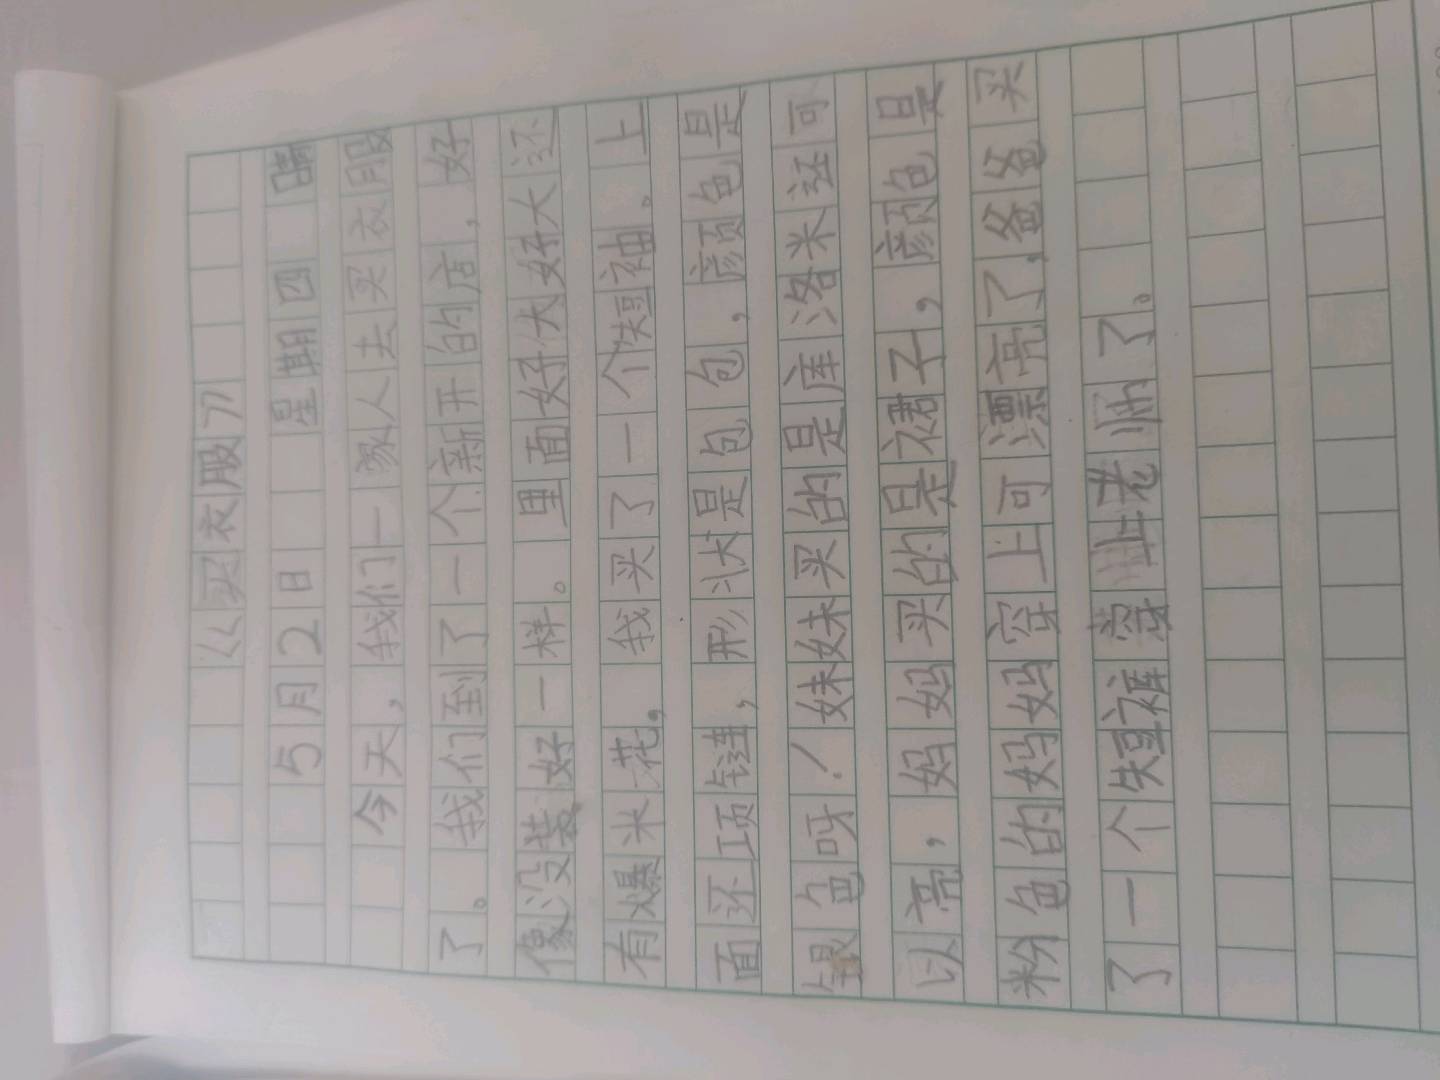 《买衣服》
5月2日 星期四 晴
今天，我们一家人去买衣服
了。我们到了一个新开的店，好
像没装好一样。里面好大好大还
有爆米花，我买了一个短袖。上
面还项链，形状是包包，颜色是
银色呀！妹妹买的是库洛米还可
以亮，妈妈买的是裙子，颜色是
粉色的妈妈穿上可漂亮了，爸爸买
了一个短裤穿上老帅了。